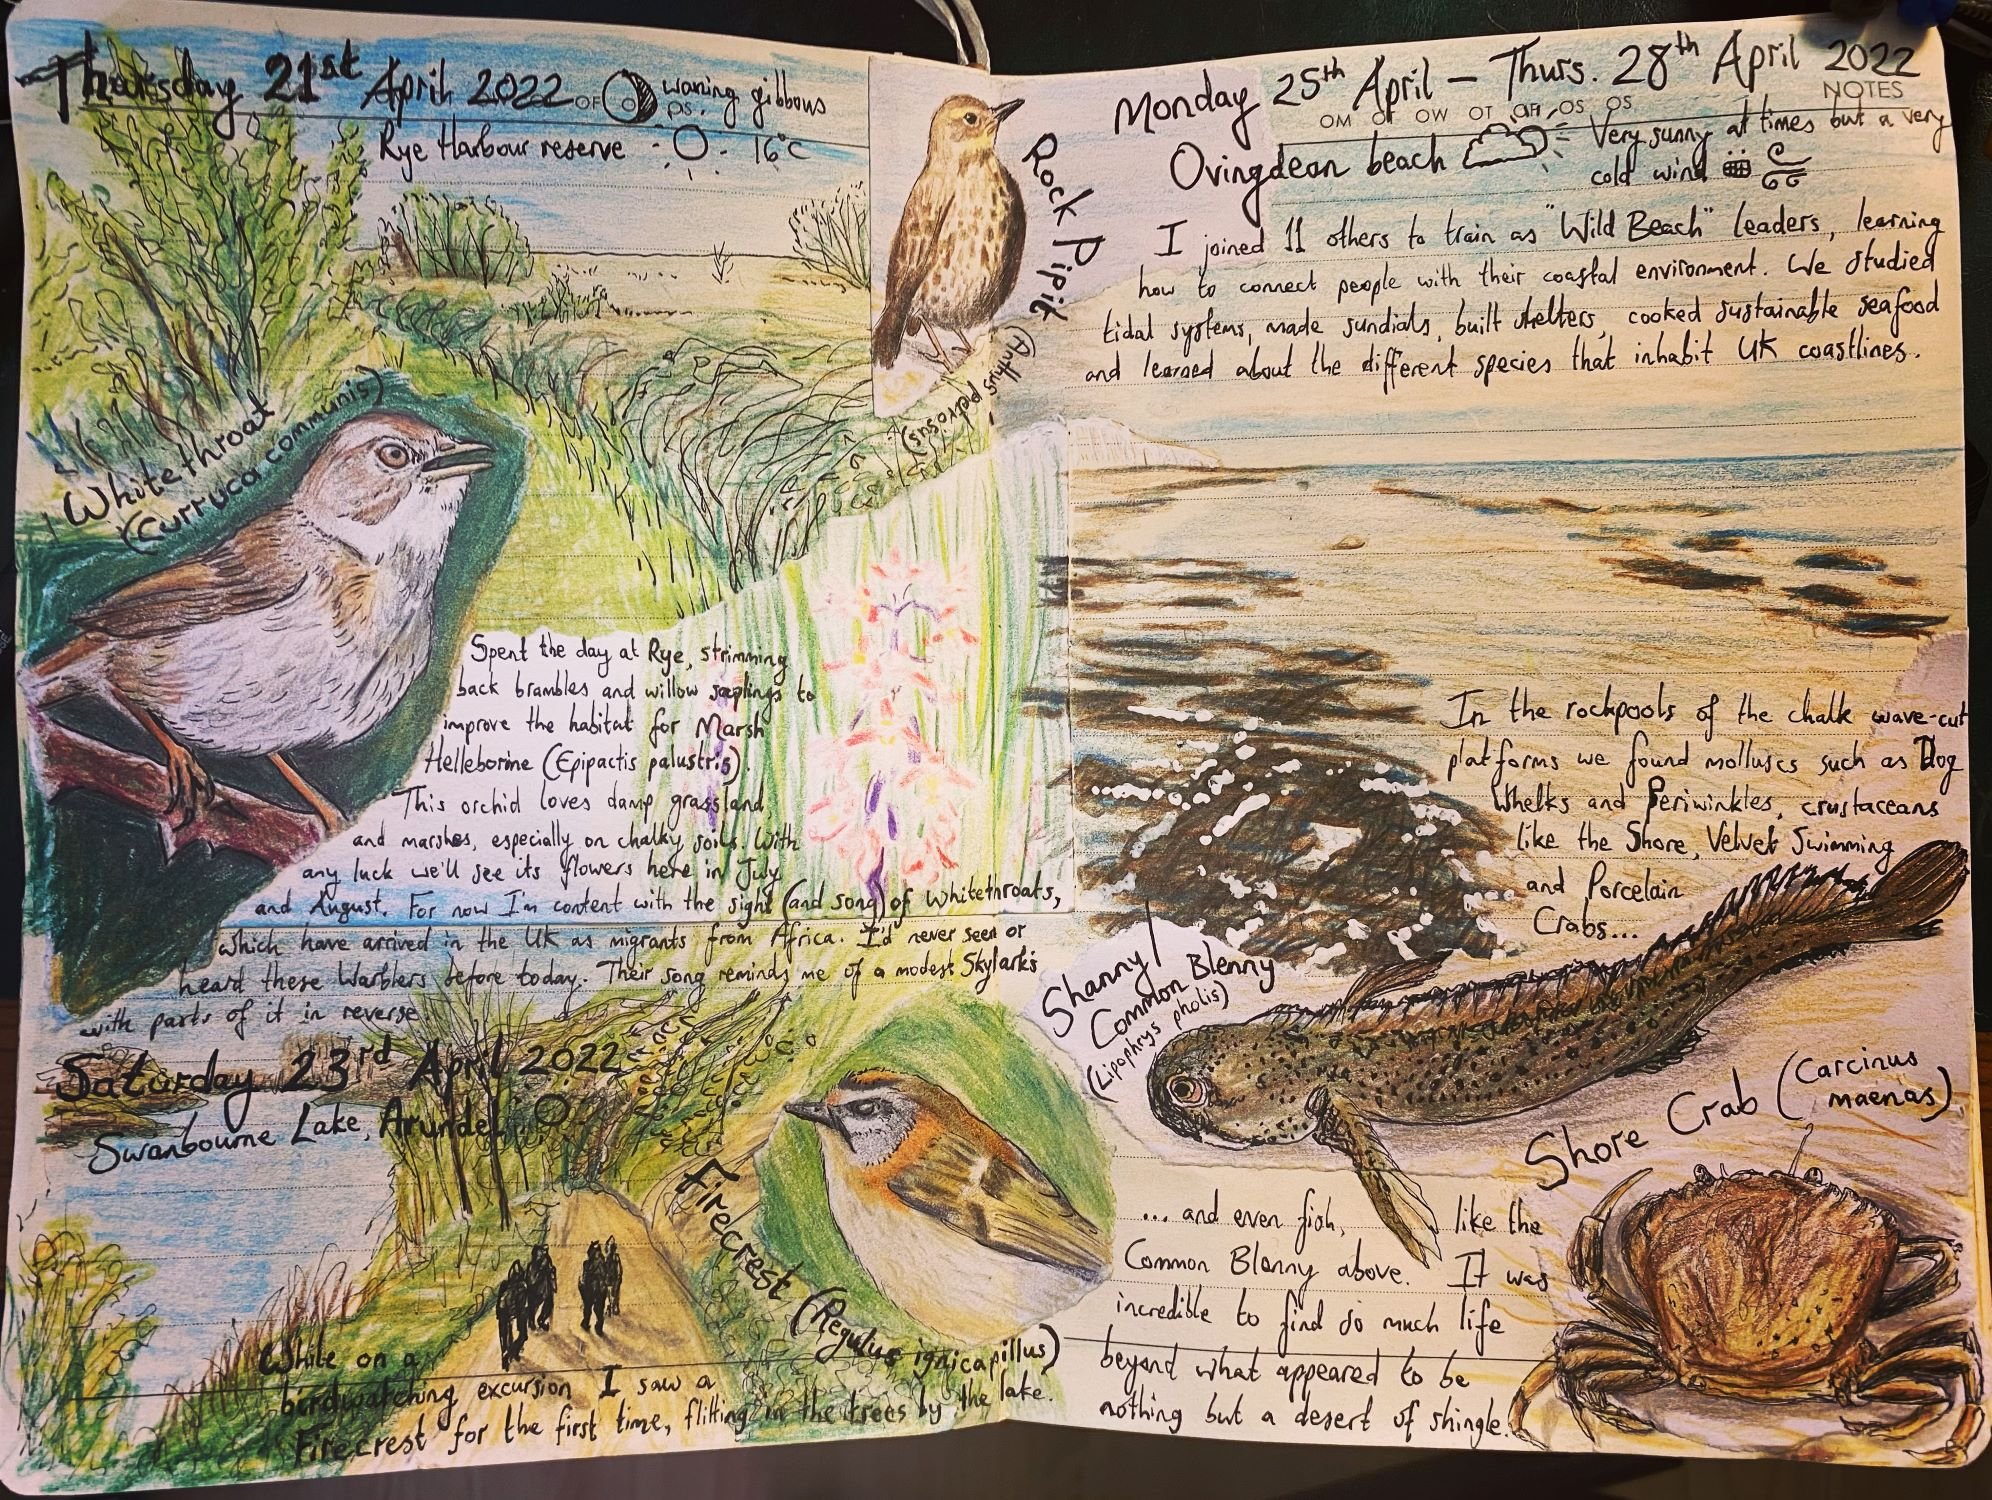 Thursday 21st April 2022
waning gibbous
Rye Harbour reserve 16°C
Whitethroat
(Curruca communis)
Rock Pipit
(Anthus petrosus)
Spent the day at Rye, strimming
back brambles and willow saplings to
improve the habitat for Marsh
Helleborine (Epipactis palustris).
This orchid loves damp grassland
and marshes, especially on chalky soils. With
any luck we'll see its flowers here in July
and August. For now I'm content with the sight (and song) of Whitethroats,
which have arrived in the UK as migrants from Africa. I'd never seen or
heard these Warblers before today. Their song reminds me of a modest Skylark's
with parts of it in reverse.
Saturday 23rd April 2022
Swanbourne Lake, Arundel
Firecrest (Regulus ignicapillus)
While on a
birdwatching excursion I saw a
Firecrest for the first time, flitting in the trees by the lake.
Monday 25th April – Thurs. 28th April 2022
NOTES
OM OW OT OS OS
Ovingdean beach
Very sunny at times but a very
cold wind
I joined 11 others to train as "Wild Beach" leaders, learning
how to connect people with their coastal environment. We studied
tidal systems, made sundials, built shelters, cooked sustainable seafood
and learned about the different species that inhabit UK coastlines.
In the rockpools of the chalk wave-cut
platforms we found molluscs such as Dog
Whelks and Periwinkles, crustaceans
like the Shore, Velvet Swimming
and Porcelain
Crabs...
Shanny/
Common Blenny
(Lipophrys pholis)
Shore Crab (Carcinus
maenas)
... and even fish, like the
Common Blenny above. It was
incredible to find so much life
beyond what appeared to be
nothing but a desert of shingle.